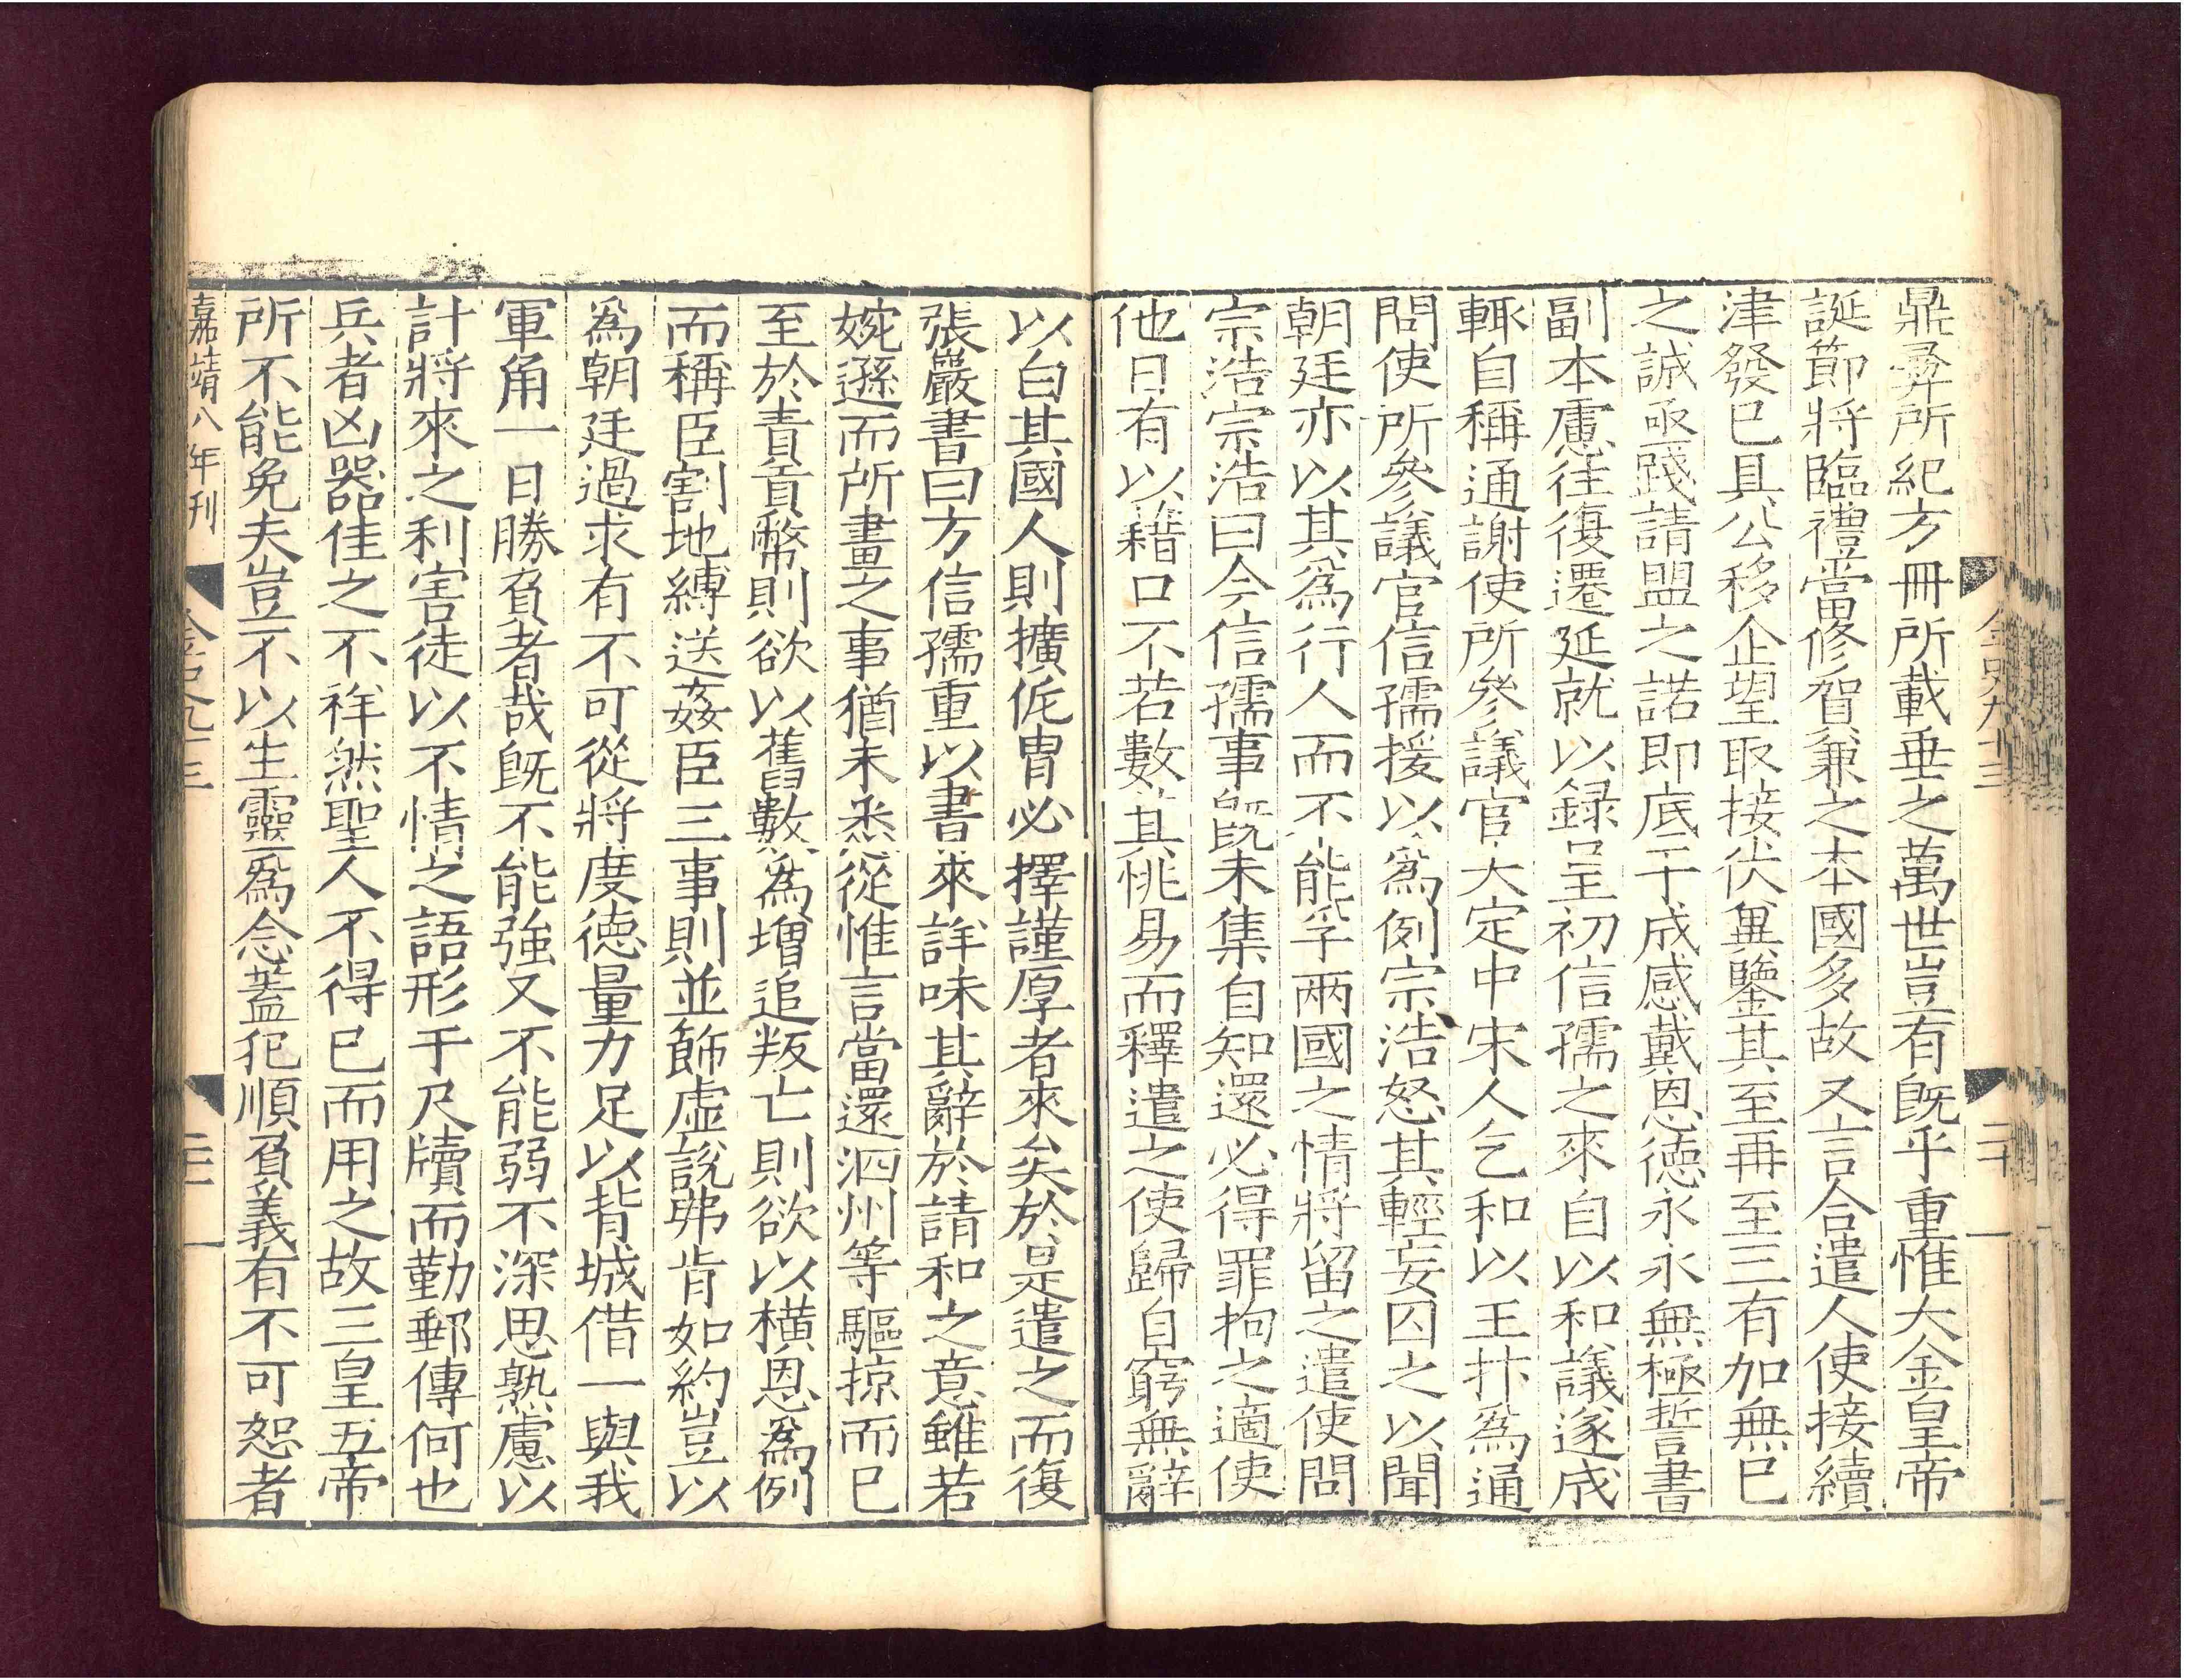 金史九十三
二十
鼎彛所紀方冊所載垂之萬世豈有旣乎重惟大金皇帝
誕節將臨禮當修賀兼之本國多故又言合遣人使接續
津發已具公移企望取接伏兾鑒其至再至三有加無已
之誠亟踐請盟之諾即底于成感戴恩德永永無極誓書
副本慮往復遷延就以録呈初信孺之來自以和議遂成
輒自稱通謝使所參議官大定中宋人乞和以王抃爲通
問使所參議官信孺援以爲例宗浩怒其輕妄囚之以聞
朝廷亦以其爲行人而不能孚兩國之情將留之遣使問
宗浩宗浩曰今信孺事旣未集自知還必得罪拘之適使
他日有以藉口不若數其恌易而釋遣之使歸自窮無辭
以白其國人則擴侂胄必擇謹厚者來矣於是遣之而復
張巖書曰方信孺重以書來詳味其辭於請和之意雖若
婉遜而所畫之事猶未悉從惟言當還泗州等驅掠而已
至於責貢幣則欲以舊數爲增追叛亡則欲以横恩爲例
而稱臣割地縛送姦臣三事則並飾虚説弗肯如約豈以
爲朝廷過求有不可從將度德量力足以背城借一與我
軍角一日勝負者哉旣不能強又不能弱不深思熟慮以
計將來之利害徒以不情之語形于尺牘而勤郵傳何也
兵者凶器佳之不祥然聖人不得已而用之故三皇五帝
所不能免夫豈不以生靈爲念蓋犯順負義有不可恕者
嘉靖八年刊